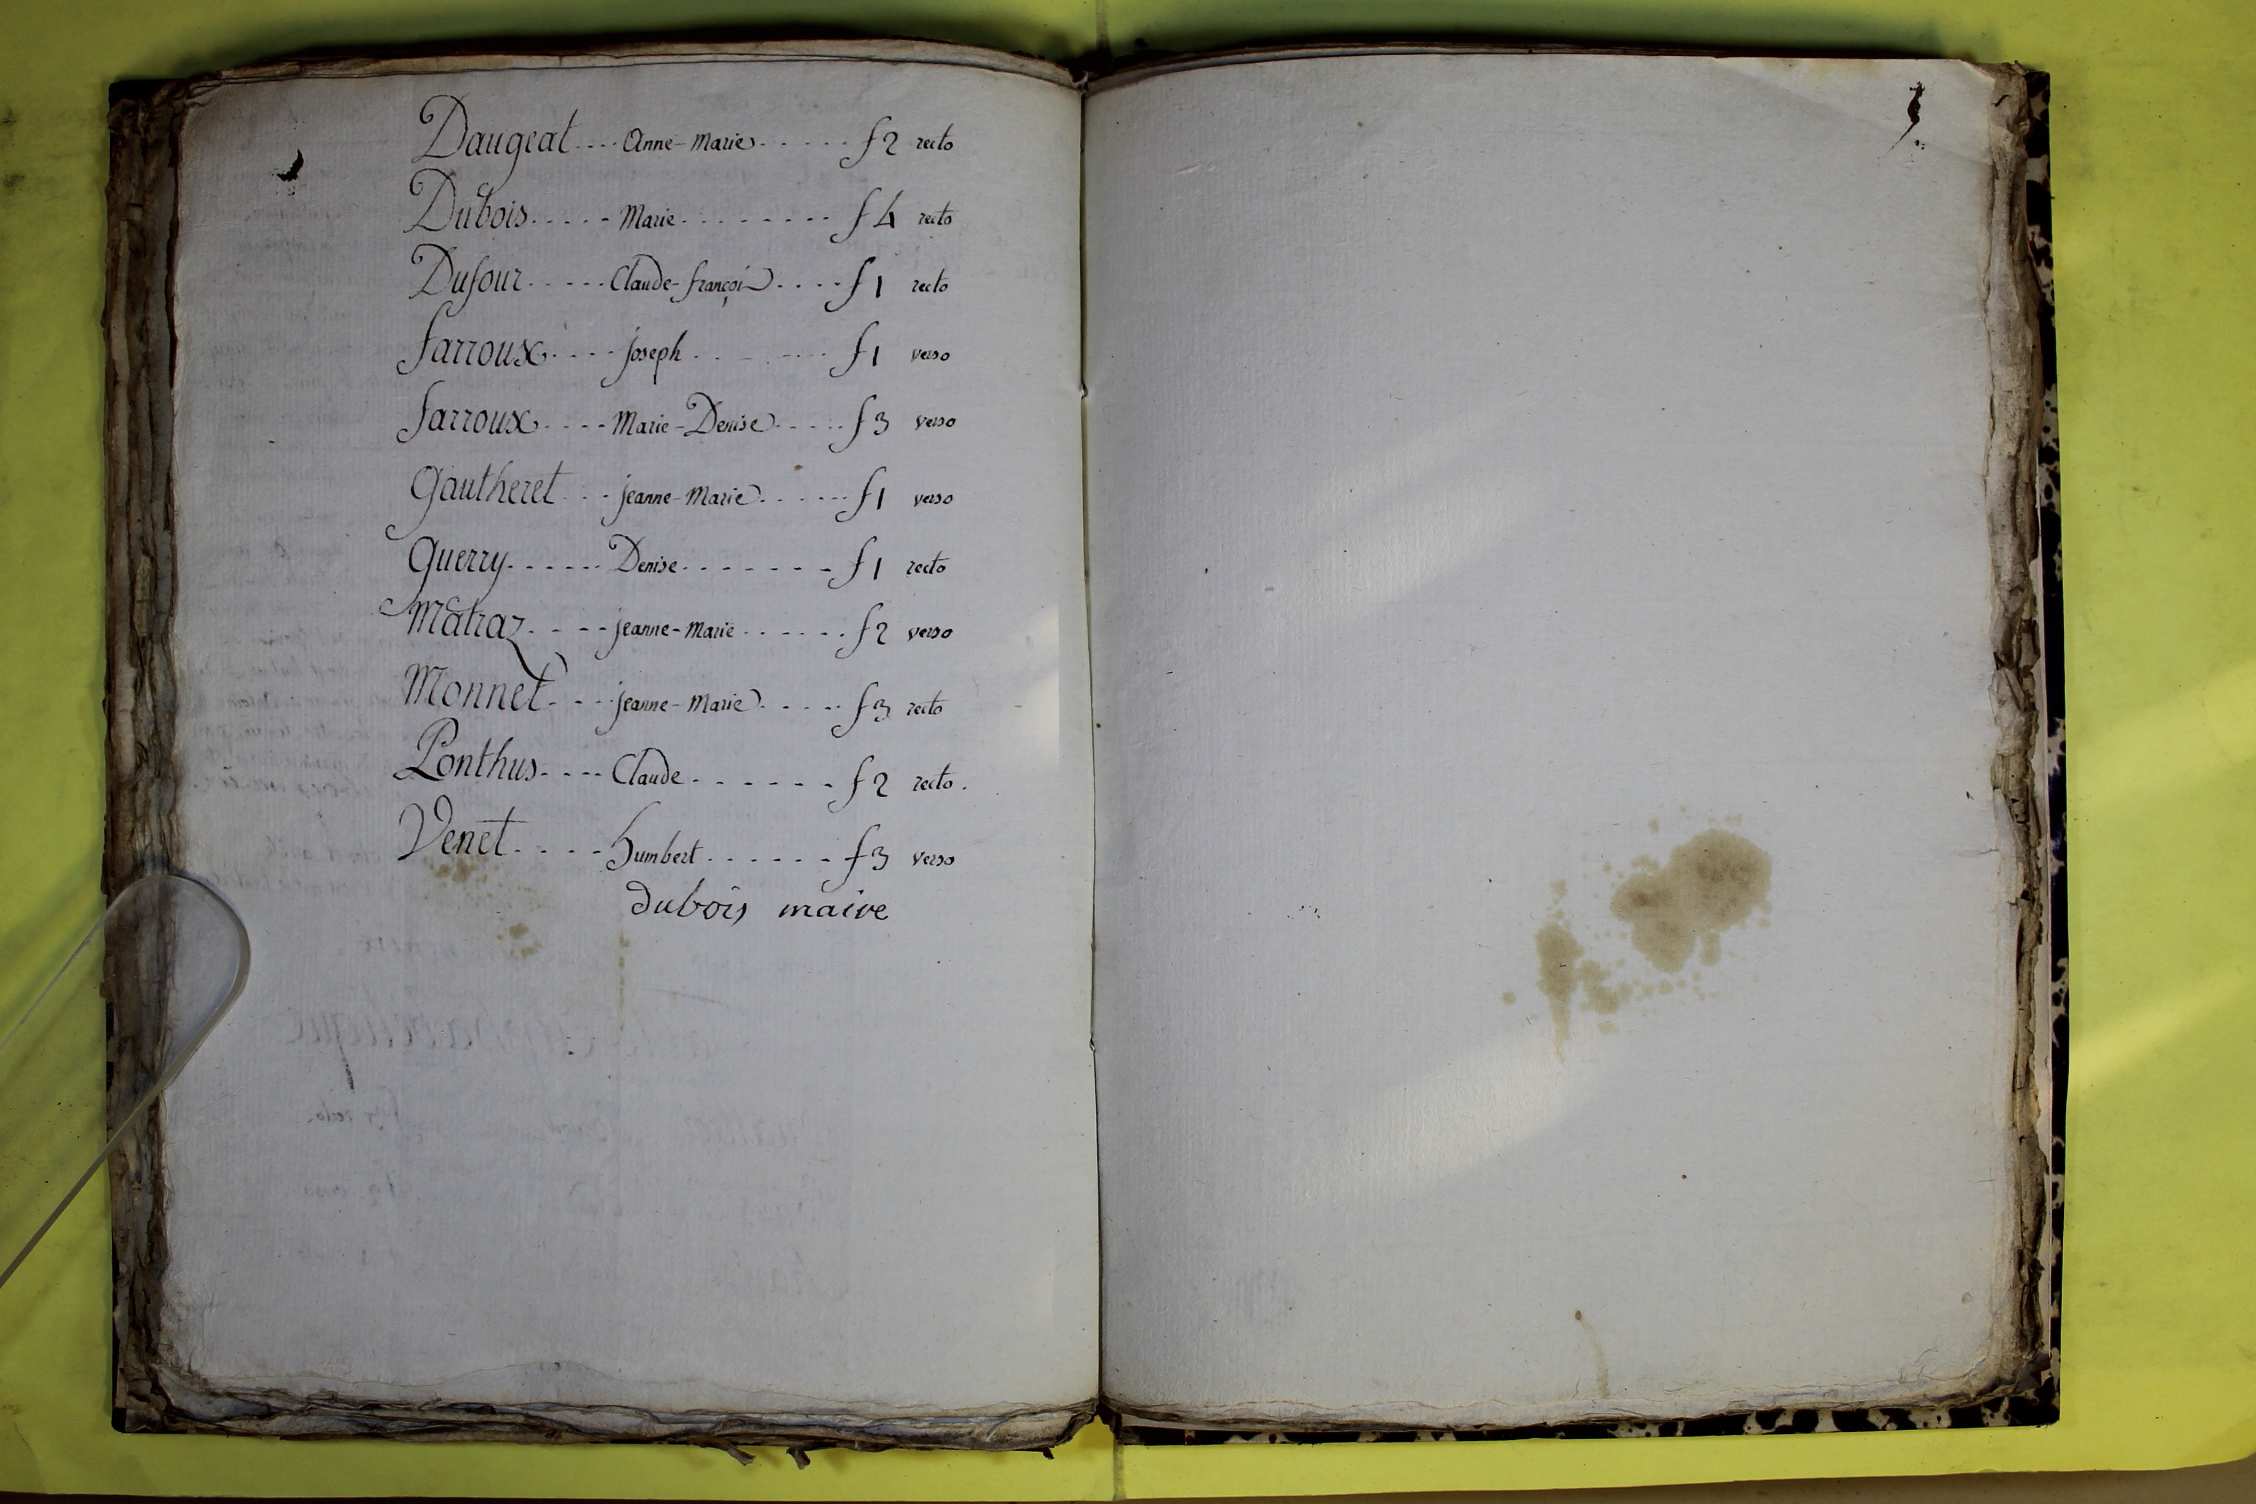 Daugeat .... Anne-Marie ...... f 2 recto
Dubois ..... Marie ........ f 4 recto
Dufour ..... Claude-françois .... f 1 recto
farroux .... joseph ........ f 1 verso
farroux .... Marie-Denise ..... f 3 verso
Gautheret ... jeanne-Marie ...... f 1 verso
Guerry ...... Denise ....... f 1 recto
Matraz .... jeanne-Marie ...... f 2 verso
Monnet ... jeanne-Marie ..... f 3 recto
Ponthus .... Claude ...... f 2 recto.
Venet .... humbert ...... f 3 verso
dubois maire